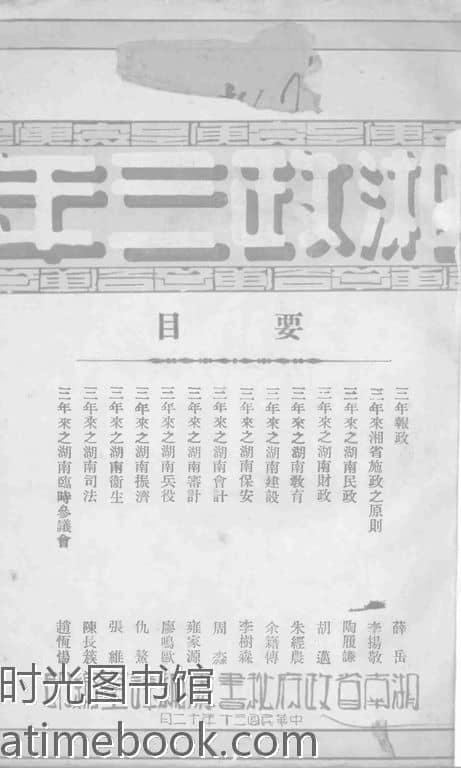 湘政三年
要目
三年報政 薛岳
三年來湘省施政之原則 李揚敬
三年來之湖南民政 陶履謙
三年來之湖南財政 胡邁
三年來之湖南教育 朱經農
三年來之湖南建設 余籍傳
三年來之湖南保安 李樹森
三年來之湖南會計 周森
三年來之湖南審計 雍家源
三年來之湖南兵役 廖鳴歐
三年來之湖南振濟 仇鰲
三年來之湖南衛生 張維
三年來之湖南司法 陳長簇
三年來之湖南臨時參議會 趙恆惕
湖南省政府秘書
中華民國三十年十二月
时光图书馆
atimebook.com